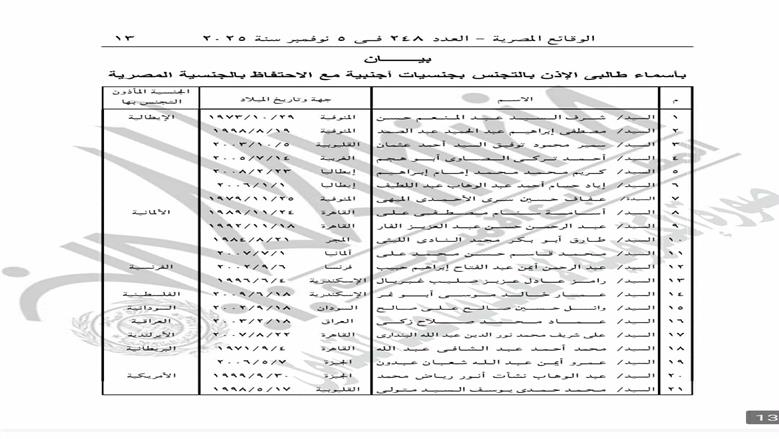 الوقائع المصرية – العدد ٢٤٨ فى ٥ نوفمبر سنة ٢٠٢٥ ١٣
بيـــان
بأسماء طالبى الإذن بالتجنس بجنسيات أجنبية مع الاحتفاظ بالجنسية المصرية
م الاســـم جهة وتاريخ الميلاد الجنسية المأذون التجنس بها
١ السيد/ شرف السيد عبد المنعم حسن المنوفية ١٩٧٣/١٠/٢٩ الإيطالية
٢ السيد/ مصطفى إبراهيم عبد الحميد عبد الصمد المنوفية ١٩٩٨/٨/١٩
٣ السيد/ سمير محمود توفيق السيد أحمد عثمان القليوبية ٢٠٠٣/١٠/٥
٤ السيد/ أحمد تركى السعداوى أبو هجم الغربية ٢٠٠٥/٧/١٤
٥ السيد/ كريم محمد محمد إمام إبراهيم إيطاليا ٢٠٠٨/٢/٢٣
٦ السيد/ إياد حسام أحمد عبد الوهاب عبد اللطيف إيطاليا ٢٠٠٦/١/١
٧ السيدة/ عفاف حسين سرى الأحمدى المنوفية ١٩٧٩/١١/٢٥
٨ السيد/ أسامة مصطفى على القاهرة ١٩٨٩/١١/٢٤ الألمانية
٩ السيد/ عبد الرحمن حسن عبد العزيز الفار القاهرة ١٩٩٢/١١/١٨
١٠ السيد/ طارق أبو بكر محمد النادى الليثى المجر ١٩٨٤/٨/٢١
١١ السيد/ محمد قاسم حسن على ألمانيا ٢٠٠٧/٧/١
١٢ السيد/ عبد الرحمن أيمن عبد الفتاح إبراهيم حسب فرنسا ٢٠٠٢/٩/٦ الفرنسية
١٣ السيد/ رامز عادل عزيز صليب غبريال الإسكندرية ١٩٩٦/٦/٤
١٤ السيد/ عمار خالد موسى أبو نمر الإسكندرية ٢٠٠٩/٦/١٨ الفلسطينية
١٥ السيد/ وائل حسين صالح على صالح السودان ٢٠٠٢/٩/١٨ السودانية
١٦ السيد/ عماد محمد صلاح زكى العراق ٢٠٠٣/٧/١٨ العراقية
١٧ السيد/ على شريف محمد نور الدين عبد الله البندارى القاهرة ٢٠٠٧/٨/٢٢ الأيرلندية
١٨ السيد/ محمد أحمد عبد الشافى عبد الله القاهرة ١٩٧١/٩/٤ البريطانية
١٩ السيد/ عمرو أيمن عبد الله شعبان عبدون الجيزة ٢٠٠٦/٥/٧
٢٠ السيد/ عبد الوهاب نشأت أنور رياض محمد الجيزة ١٩٩٩/٩/٣٠ الأمريكية
٢١ السيد/ محمد حمدى يوسف السيد متولى القليوبية ١٩٩٨/٥/١٧
13